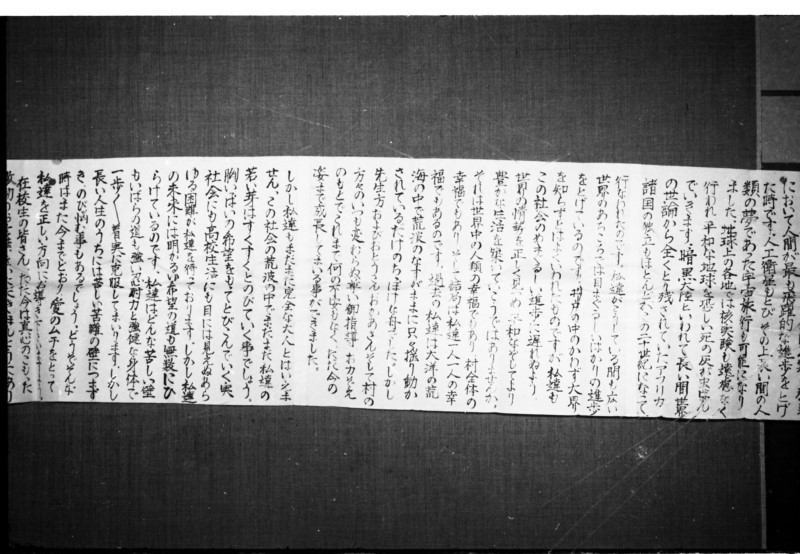 において人間が最も飛躍的な進歩をとげ
た時です。人工衛星もとびその上、長い間の人
類の夢であった宇宙旅行も可能になり
ました。地球上の各地では核実験も
行われ平和な地球を
できます。暗黒大陸といわれて長い間世界
の世論から全くとり残されていたアフリカ
諸国の独立もほとんどこの二十世紀になって
行なわれたのです。私達がこうしている間も広い
世界のあちこちでは目まぐるしいばかりの進歩
をとげているのです。井戸の中のかわず大海
を知らずとはよくいわれたものですが、私達も
この社会のめまぐるしい進歩に遅れぬよう、
世界の情勢を正しく見つめ平和なそしてより
豊かな生活を築いていこうではありませんか。
それは世界中の人類の幸福でもあり、村全体の
幸福でもあり、そして結局は私達一人一人の幸
福でもあるのです。過去の私達は大洋の荒
海の中で荒波のなすがままに只々揺り動か
されているだけのちっぽけな舟でした。しかし
先生方およびおとうさんおかあさんそして村の
方々のいつも変わらぬ尊い御指導、お力ぞえ
のもとでこれまで何の不安もなく、ただ今の
姿まで成長してまいる事ができました。
しかし私達もまだまだ完全な大人とはいえま
せん。この社会の荒波の中でまだまだ私達の
若い芽はすくすくとのびていく事でしょう。
胸いっぱいの希望をもってとびこんでいく実
社会にも高校生活にも目には見えぬあら
ゆる困難が私達を待っております。しかし私達
の未来には明かるい希望の道も無数にひ
らけているのです。私達はどんな苦しい壁
もいばらの道も強い忍耐力と強健な身体で
一歩く皆克服してまいります。しかし
長い人生のうちには苦しい苦難の壁につま
きのび悩む事もあるでしょう。どうぞそんな
時はまた、今までどおり愛のムチをとって
私達を正しい方向にお導き下さいませ。
在校生の皆さん、ただ今は真心のこもった